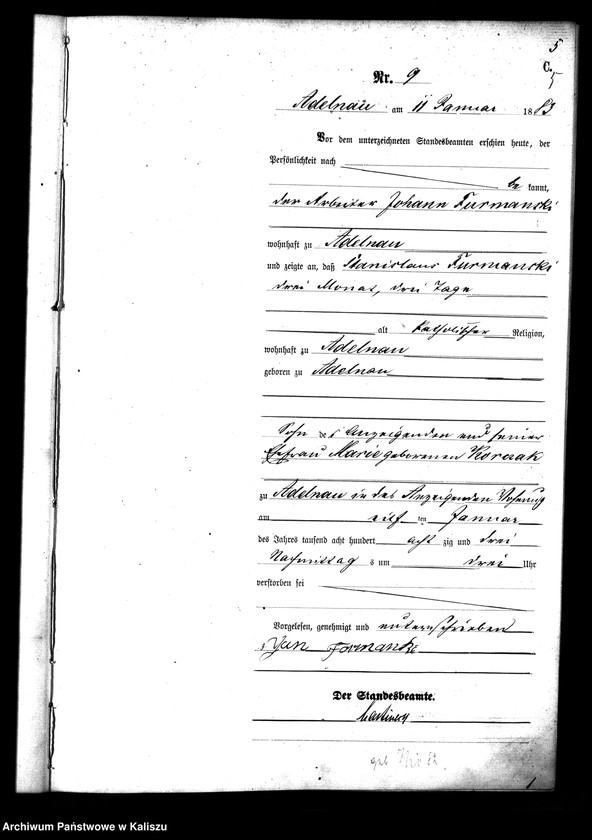 5
C.
5
Nr. 9
Adelnau am 11 Januar 1883
Vor dem unterzeichneten Standesbeamten erschien heute, der
Persönlichkeit nach
be kannt,
der Arbeiter Johann Furmanski
wohnhaft zu Adelnau
und zeigte an, daß Stanislaus Furmanski
drei Monat, drei Tage
alt katholischer Religion,
wohnhaft zu Adelnau
geboren zu Adelnau
Sohn des Anzeigenden und seiner
Ehefrau Marie geborenen Korczak
zu Adelnau in des Anzeigenden Wohnung
am elf ten Januar
des Jahres tausend acht hundert acht zig und drei
Nachmittag s um drei Uhr
verstorben sei
Vorgelesen, genehmigt und unterschrieben
Jan
Der Standesbeamte.
geb 82
1
Archiwum Państwowe w Kaliszu